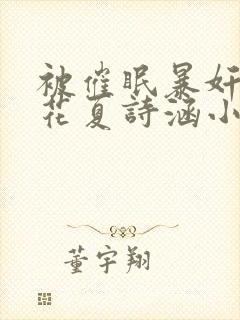 被催眠暴奸
花夏詩涵小
董宇翔